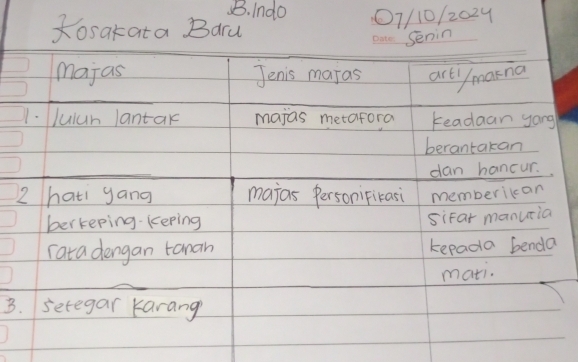 B.Indo
07/10/2024
Kosakata Baru
Date: Senin
majas Jenis majas arti/makna
1. luluh lantak majas metafora keadaan yang
berantakan
dan hancur.
2 hati yang majas Personifikasi memberikan
berkeping-keping sifat manusia
rata dengan tanah kepada benda
mati.
3. setegar karang